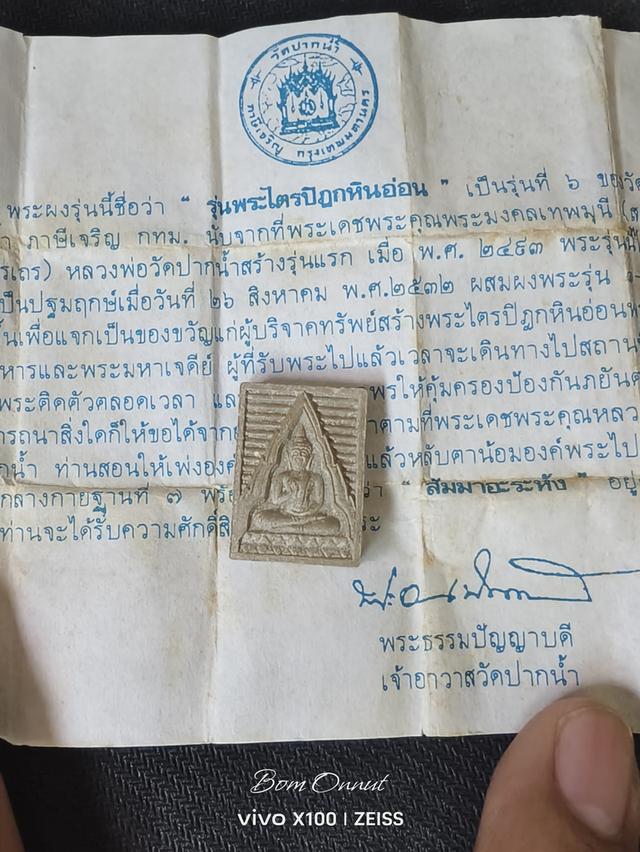 วัดปากน้ำ
ภาษีเจริญ กรุงเทพมหานคร
พระผงรุ่นนี้ชื่อว่า " รุ่นพระไตรปิฎกหินอ่อน " เป็นรุ่นที่ ๖ ของวัด
ภาษีเจริญ กทม. นับจากที่พระเดชพระคุณพระมงคลเทพมุนี
เถร) หลวงพ่อวัดปากน้ำสร้างรุ่นแรก เมื่อ พ.ศ. ๒๔๙๓ พระรุ่นนี้
เป็นปฐมฤกษ์เมื่อวันที่ ๒๖ สิงหาคม พ.ศ.๒๕๓๒ ผสมผงพระรุ่น
เพื่อแจกเป็นของขวัญแก่ผู้บริจาคทรัพย์สร้างพระไตรปิฎกหินอ่อน
หารและพระมหาเจดีย์ ผู้ที่รับพระไปแล้วเวลาจะเดินทางไปสถาน
พระติดตัวตลอดเวลา และ พรให้คุ้มครองป้องกันภยันต
รถนาสิ่งใดก็ให้ขอได้จาก ตามที่พระเดชพระคุณหลว
น้ำ ท่านสอนให้เพ่งองค์ แล้วหลับตาน้อมองค์พระไป
กลางกายฐานที่ ๗ ว่า " สัมมาอะระหัง " อยู่
ท่านจะได้รับความศักดิ์สิ ระ
พระธรรมปัญญาบดี
เจ้าอาวาสวัดปากน้ำ
Bom Onnut
vivo X100 | ZEISS